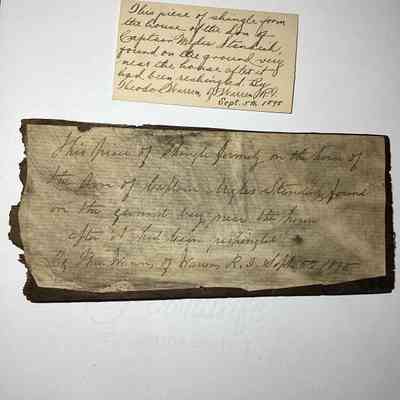 This piece of shingle from
the house of the Son of
Captain Myles Standish,
found on the ground very
near the house after it
had been reshingled. By
Theodor Warren, of Warren, R.I.
Sept. 5th 1895
This piece of shingle formerly on the house of
the Son of Captain Myles Standish, found
on the ground very near the house
after it had been reshingled
By Warren, of Warren R. I. Sept. 5th 1895